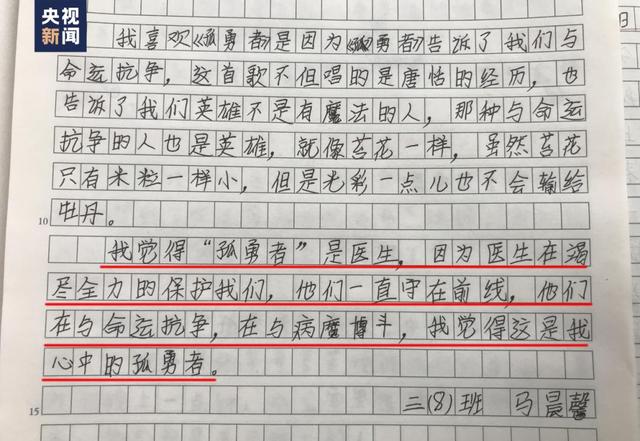 央视
新闻
日
我喜欢《孤勇者》是因为《孤勇者》告诉了我们与
命运抗争，这首歌不但唱的是唐恬的经历，也
告诉了我们英雄不是有魔法的人，那种与命运
抗争的人也是英雄，就像苔花一样，虽然苔花
只有米粒一样小，但是光彩一点儿也不会输给
牡丹。
10
我觉得“孤勇者”是医生，因为医生在渴
尽全力的保护我们，他们一直守在前线，他们
在与命运抗争，在与病魔博斗，我觉得这是我
心中的孤勇者。
15
二(8)班 马晨馨